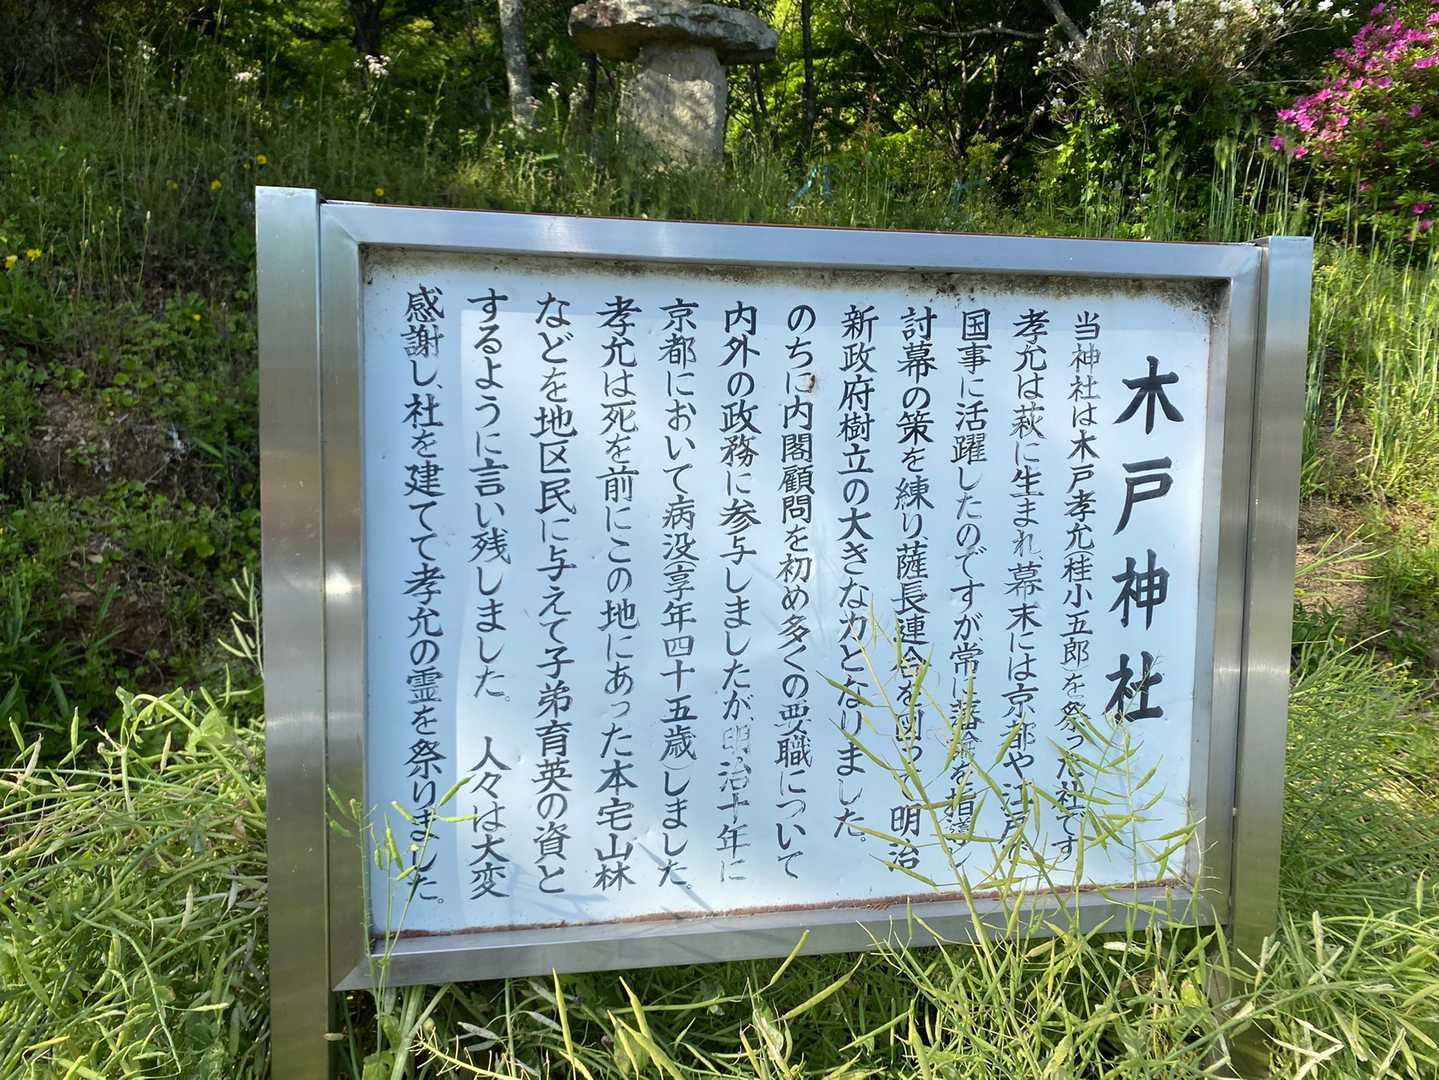 木戸神社
当神社は木戸孝允(桂小五郎)を祭った社です
孝允は萩に生まれ、幕末には京都や江戸
国事に活躍したのですが、常に藩論を指導し
討幕の策を練り、薩長連合を図って 明治
新政府樹立の大きな力となりました。
のちに内閣顧問を初め多くの要職について
内外の政務に参与しましたが、明治十年に
京都において病没(享年四十五歳)しました。
孝允は死を前にこの地にあった本宅山林
などを地区民に与えて子弟育英の資と
するように言い残しました。 人々は大変
感謝し、社を建てて孝允の霊を祭りました。